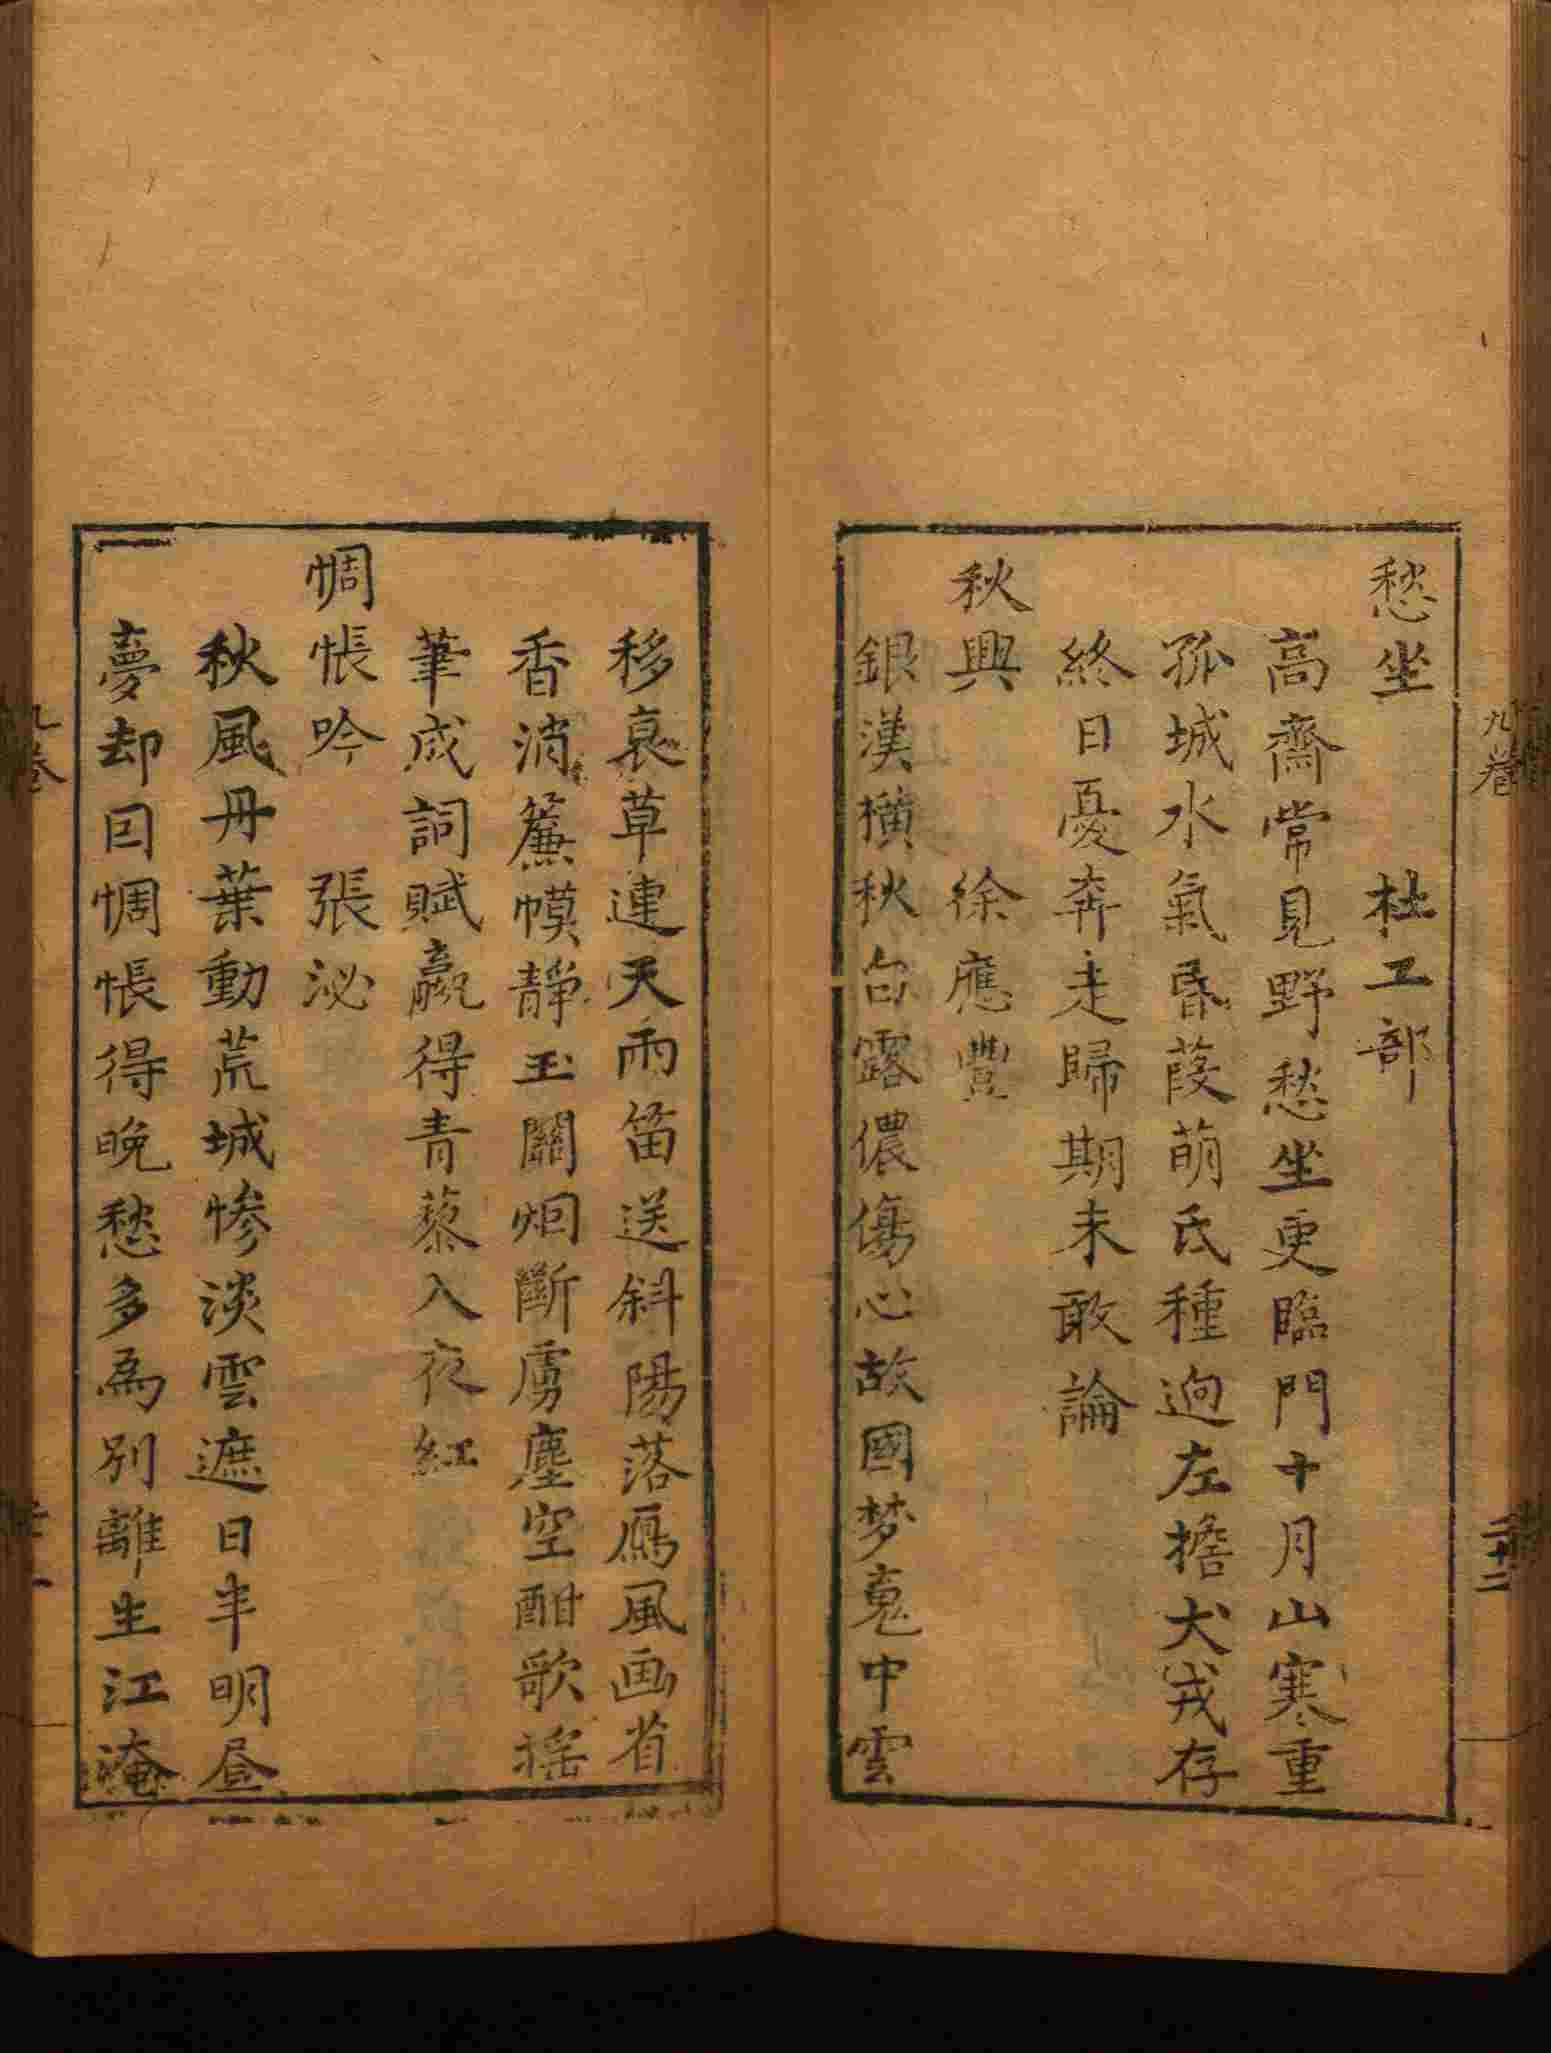 九卷
二十二
愁坐 杜工部
高齋常見野愁坐更臨門十月山寒重
孤城水氣昏葭萌氐種逈左擔犬戎存
終日憂奔走歸期未敢論
秋興 徐應豐
銀漢橫秋白露儂傷心故國梦䰟中雲
移哀草連天雨笛送斜陽落鴈風画省
香消簾幙静玉關烟斷虜塵空酣歌揺
筆成詞賦贏得青藜入夜紅
惆悵吟 張泌
秋風丹葉動荒城慘淡雲遮日半明昼
夢却囙惆悵得晚愁多為別離生江淹
九卷